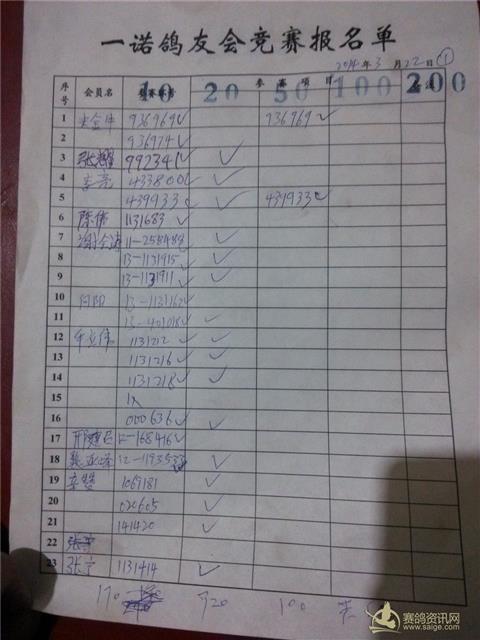 一诺鸽友会竞赛报名单
2014年3月22日①
序号 会员名 10 20 参赛项目 50 100 200
1 936969✓ 936969✓
2 936974✓
3 张耀 992341✓ ✓
4 李亮 433800✓ ✓
5 439933✓ ✓ 439933✓
6 陈伟 1131683✓
7 11-258488 ✓
8 13-1131915✓ ✓
9 13-1131911✓ ✓
10 13-1131162✓
11 13-401018✓ ✓
12 1131212✓ ✓
13 1131216✓ ✓
14 1131218✓ ✓
15
16 000636✓ ✓
17 邢建民 12-168416✓
18 ✓
19 1069181 ✓
20 020605 ✓
21 141420 ✓
22
23 张宁 1131414 ✓
170 320 100
赛鸽资讯网
www.saige.com